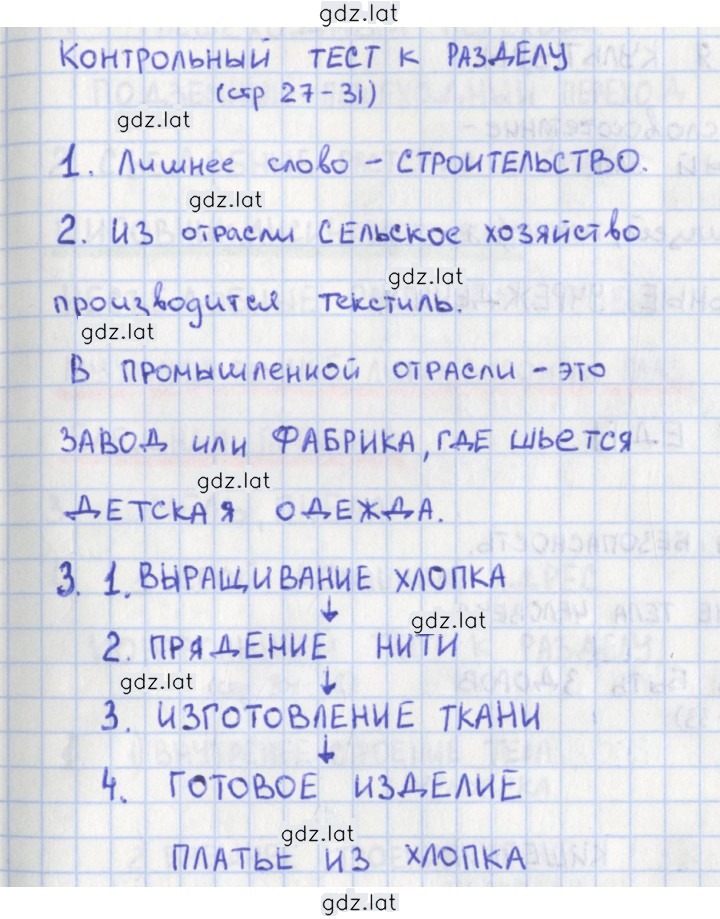 gdz.lat
КОНТРОЛЬНЫЙ ТЕСТ К РАЗДЕЛУ
(стр 27-31)
gdz.lat
1. Лишнее слово - СТРОИТЕЛЬСТВО.
gdz.lat
2. ИЗ отрасли СЕЛЬСКОЕ хозяйство
gdz.lat
производится текстиль.
gdz.lat
В ПРОМЫШЛЕННОЙ ОТРАСЛИ - ЭТО
ЗАВОД или ФАБРИКА, ГДЕ шьется
gdz.lat
ДЕТСКАЯ ОДЕЖДА.
3. 1. ВЫРАЩИВАНИЕ ХЛОПКА
gdz.lat
2. ПРЯДЕНИЕ НИТИ
gdz.lat
3. ИЗГОТОВЛЕНИЕ ТКАНИ
4. ГОТОВОЕ ИЗДЕЛИЕ
gdz.lat
ПЛАТЬЕ ИЗ ХЛОПКА
gdz.lat